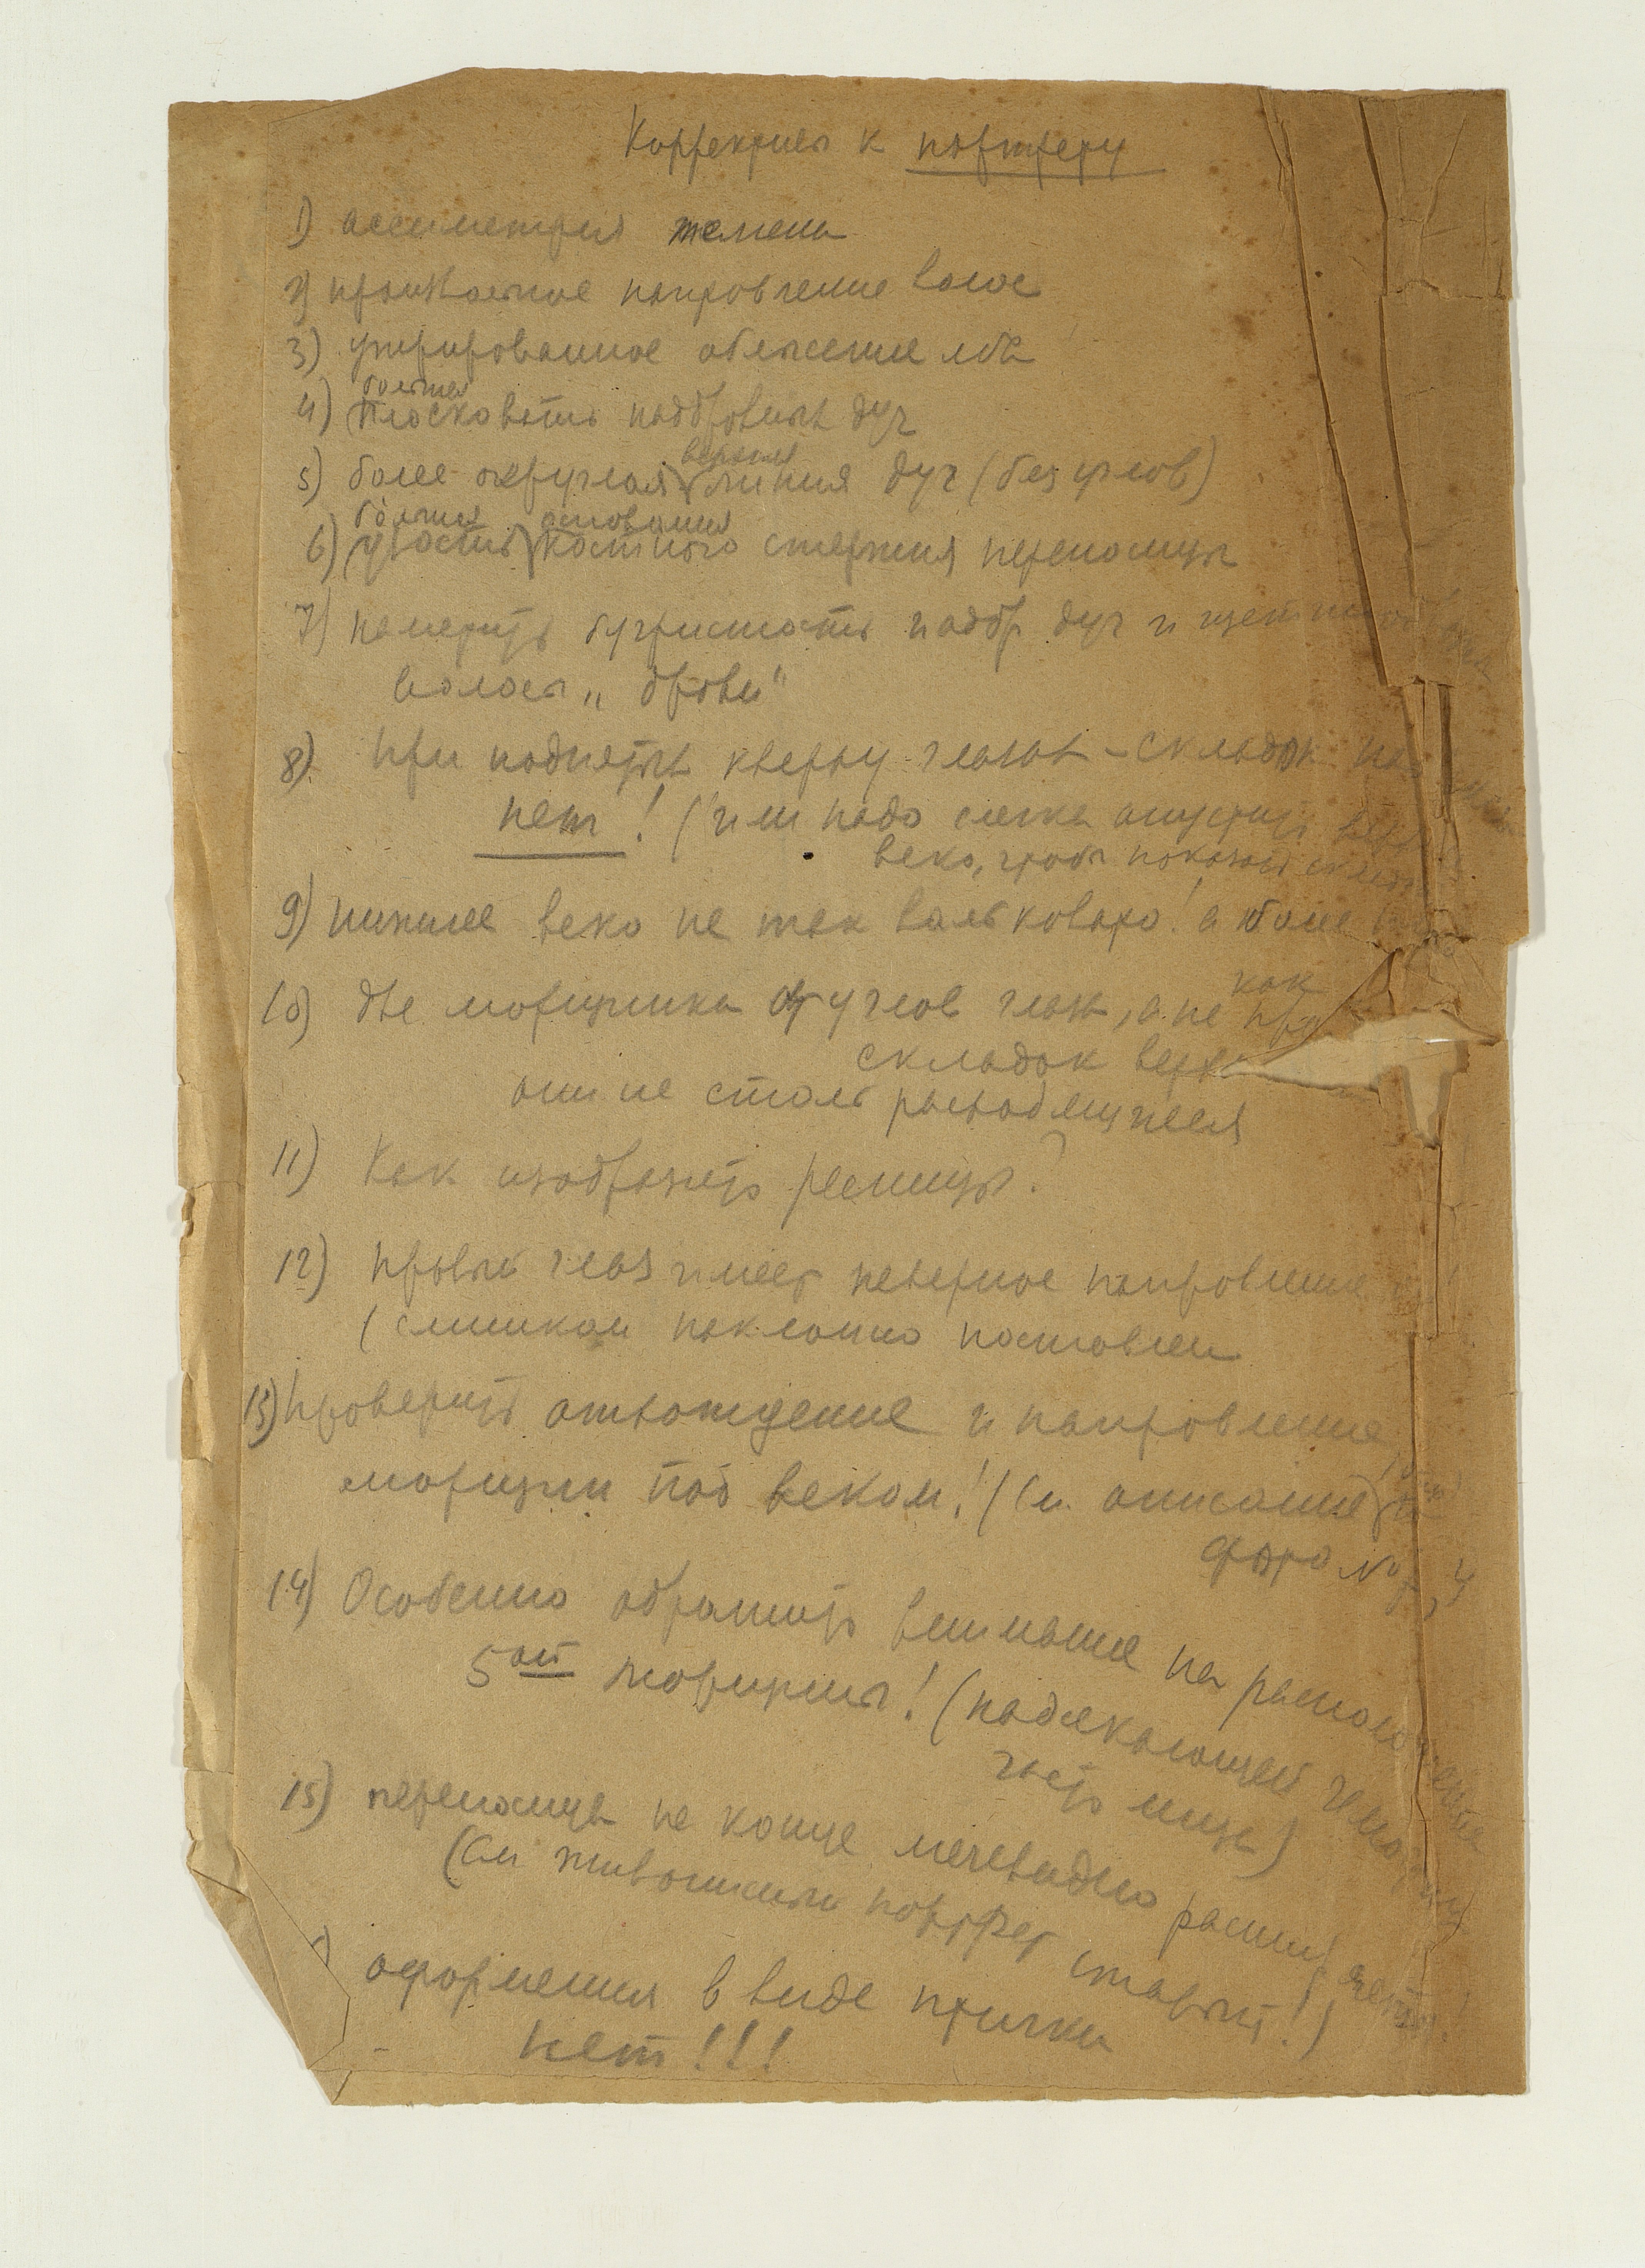 Коррективы к портрету
1) ассиметрия темени
2) произвольное направление волос
3) утрированное облысение лба
4) большая плосковатость надбровных дуг
5) более округлая верхняя линия дуг (без углов)
6) большая узость основания костного стержня переносицы
7) наметить бугристость надбр дуг и
волосы „брови"
8) При поднятых кверху глазах – складок
нет! (или надо слегка опустить
веко, чтобы показать
9) нижнее веко не так вальковато! а более
10) две морщинки от углов глаз, а не как
складок
они не столь расходящиеся
11) Как изобразить ресницы?
12) правый глаз имеет неверное направление
(слишком наклонно поставлен
13) Проверить отхождение и направление
морщин под веком! (См. описание
фото №
14) Особенно обратить внимание на расположение
5ой морщины! (подсекающей
часть лица)
15) переносица на конце мечевидно расширяется!
(См живописный портрет старый!)
оформления в виде птички
нет!!!